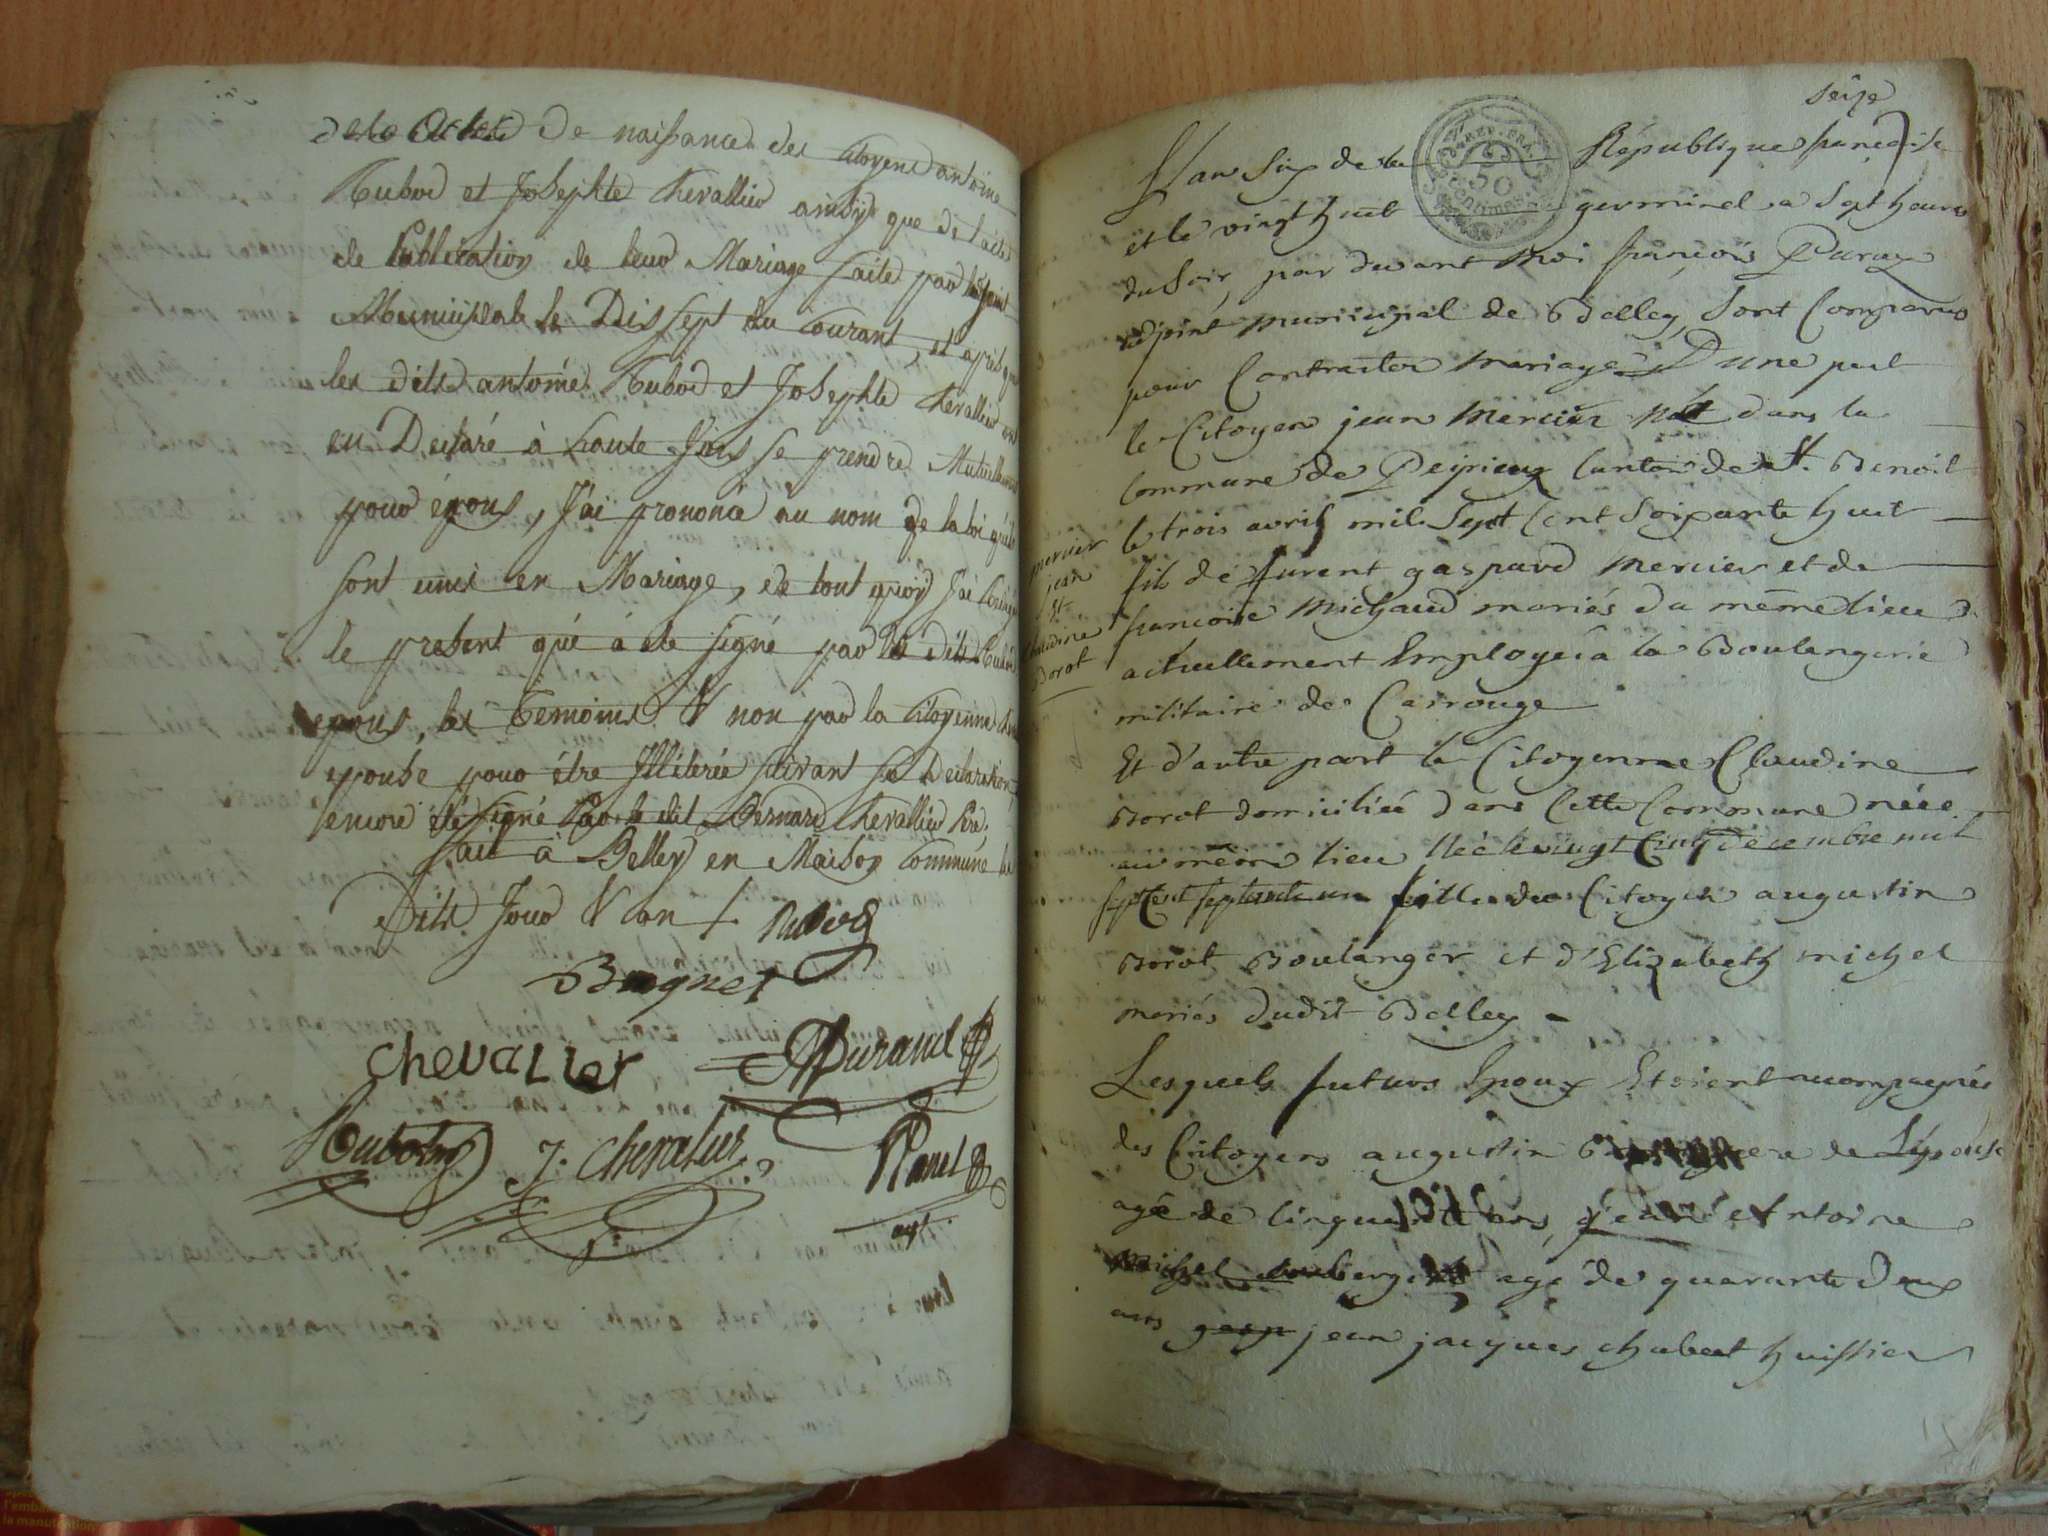 de naissance des Citoyens antoine
Rubod et Josephte Chevallier ainsy que de l'acte
de Publication de leur Mariage faite par
Municipale le Dis sept du Courant, et après que
les dits antoine Rubod et Josephte Chevallier ont
eu Declaré à haute Voix se prendre Mutuellement
pour époux, J'ai prononcé au nom de la loi qu'ils
sont unis en Mariage, de tout quoy J'ai
le present qui à eté signé par le dit Rubod
epoux, les Temoins & non par la Citoyenne
epouse pour être Illiterée suivant sa Declaration,
encore été signé Par le dit Bernard Chevallier Père,
fait à Belley en Maison Commune les
Dits Jour & an
Bognet
chevallier
Durand
Rubod
J. chevalier
Planet
agt
seize
L'an Six de la République françoise
REP. FRA.
50
Centimes
et le vingt huit germinal a Sept heures
du Soir, par devant moi françois Parax
adjoint municipal de Belley, Sont Comparus
pour Contracter mariage D'une part
le Citoyen jean Mercier né dans la
Commune de Peyrieux Canton de St. Benoit
le trois avril mil Sept Cent Soixante huit
fils de furent gaspard Mercier et de
francoise Michaud mariés du même lieu
actuellement Employé à la Boulangerie
militaire de Carrouge
mercier
jean
et
Claudine
Borot
Et d'autre part la Citoyenne Claudine
Borot domiciliée dans Cette Commune née
au même lieu Née le vingt Cinq Decembre mil
Sept Cent Septante un fille du Citoyen augustin
Borot Boulanger et d'Elizabeth michel
mariés dudit Belley
Lesquels futurs Epoux Etoient accompagnés
des Citoyens augustin de L'épouse
agé de Cinquante ans, Antoine
Michel agé de quarante Deux
ans jean jacques chabert huissier